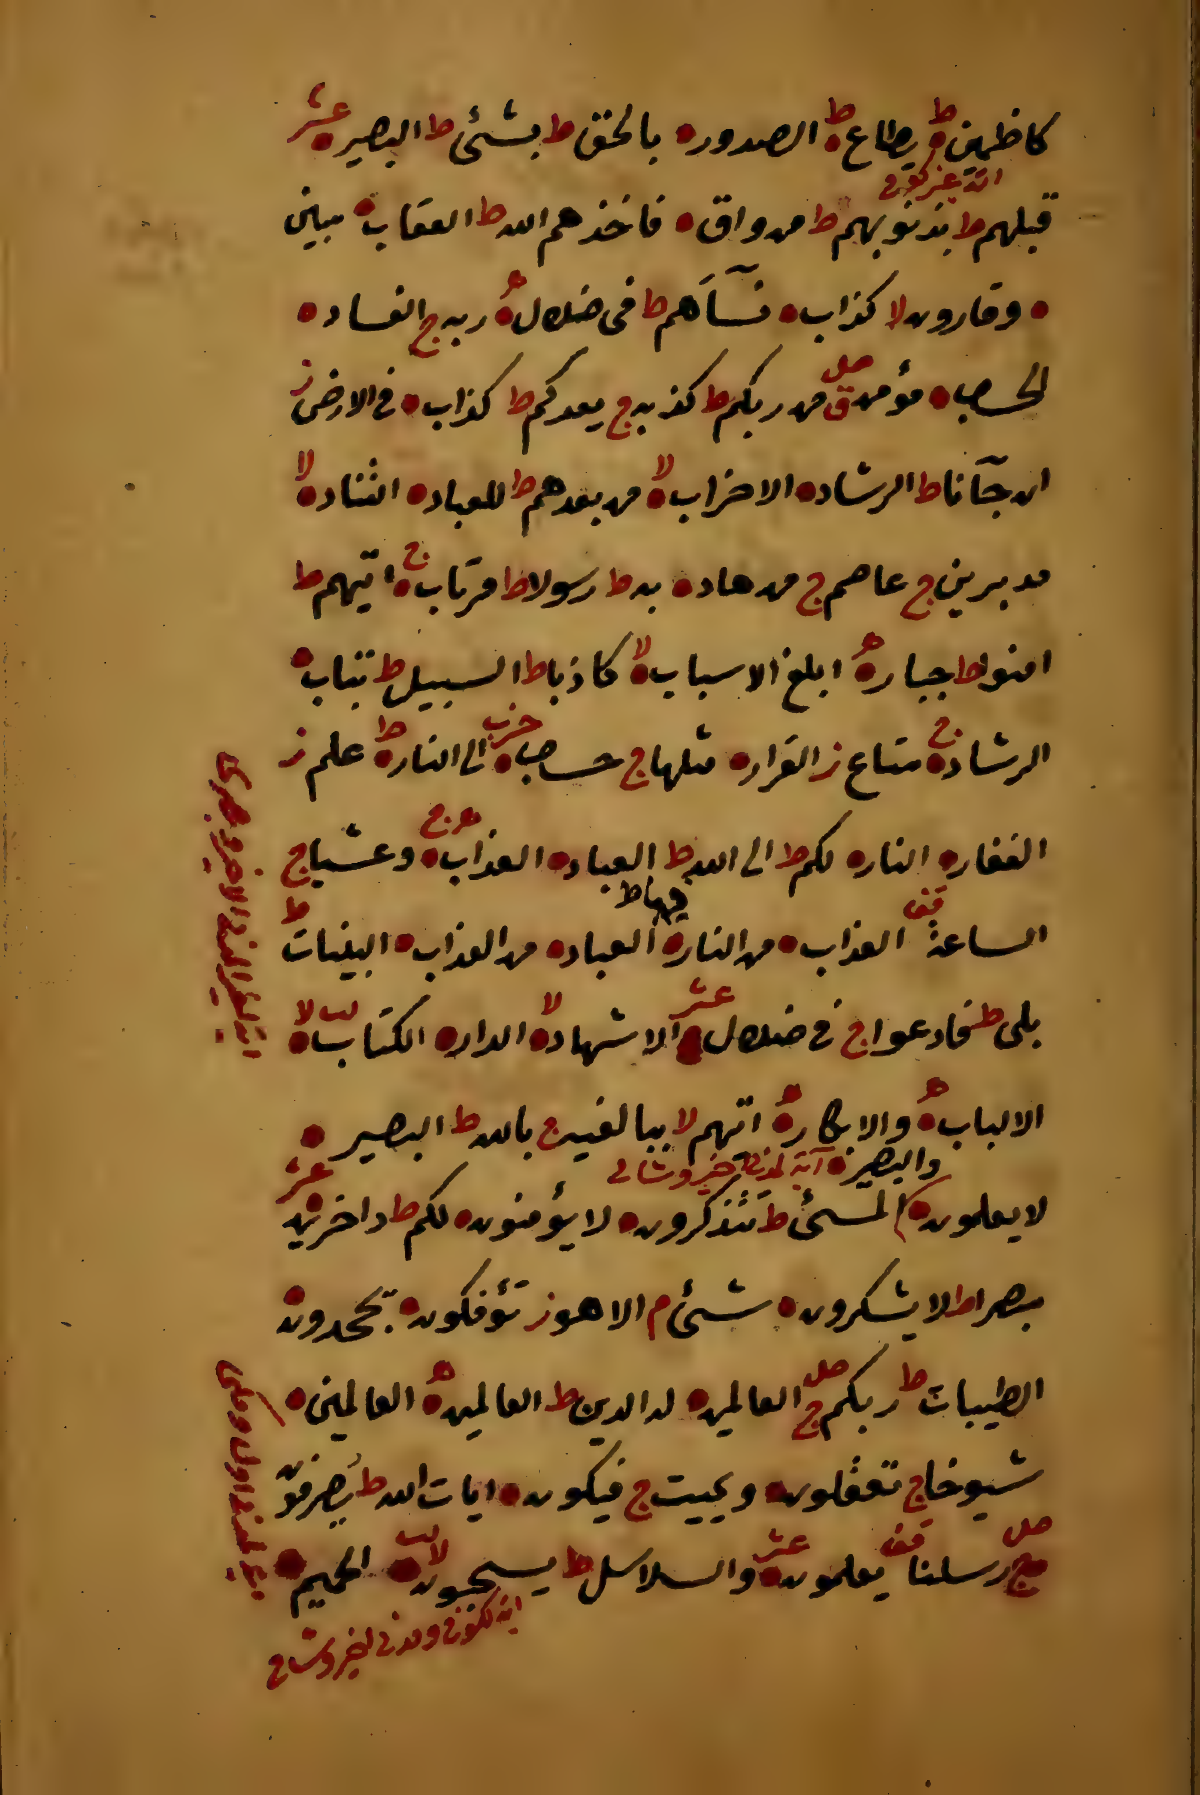 كاظمين ط يطاع ط الصدور بالحق ط بشئ ط البصير عشر
اية غير كوفى
قبلهم ط بذنوبهم ط من واق فاخذهم الله ط العقاب مبين
وقارون لا كذاب نسآءهم ط فى ضلال ه ربه ج الفساد
الحساب مؤمن ق صل من ربكم ط كذبه ج يعدكم ط كذاب فى الارض ز
ان جآءنا ط الرشاد الاحزاب لا من بعدهم ط للعباد التناد لا
مدبرين ج عاصم ج من هاد به ط رسولا ط مرتاب ج اتيهم ط
امنوا ط جبار ه ابلغ الاسباب لا كاذبا ط السبيل ط تباب
الرشاد ج متاع ز القرار مثلها ج حساب حزب الى النار ط علم ز
الغفار النار لكم ط الى الله ط العباد العذاب ج وعشيا ج
فيها ط
الساعة قف العذاب من النار العباد من العذاب البينات ط
بلى ط فادعوا ج فى ضلال عشر الاشهاد لا الدار الكتاب لب لا
الالباب ه والابكار ه اتيهم لا ببالغيه ج بالله ط البصير
والبصير آية
لا يعلمون المسئ ط تتذكرون لا يؤمنون لكم ط داخرين عشر
مبصرا ط لا يشكرون شئ م الا هو ز تؤفكون يجحدون
الطيبات ط ربكم ج صل العالمين له الدين ط العالمين ه العالمين
شيوخا ج تعقلون ويميت ج فيكون ايات الله ط يصرفون
صل ج رسلنا قف يعلمون عشر والسلاسل ط يسحبون لا لب الحميم